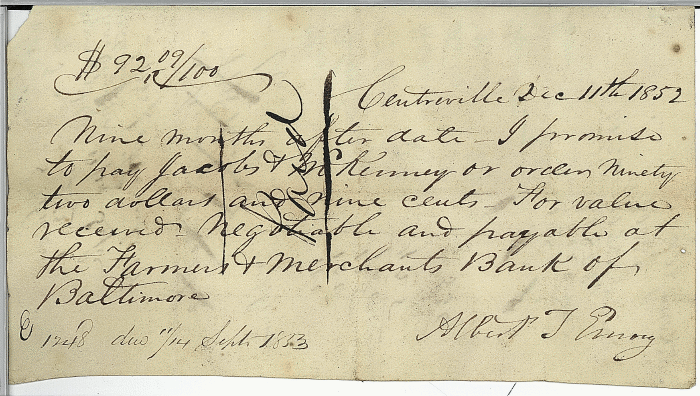 $ 92 09/100
Centreville Dec 11th 1852
Nine months after date - I promise
to pay Jacobs & McKenney or order Ninety
two dollars and nine cents - For value
received - Negotiable and payable at
the Farmers & Merchants Bank of
Baltimore
Paid
Albert T Emory
1248 due 11/14 Sept 1853